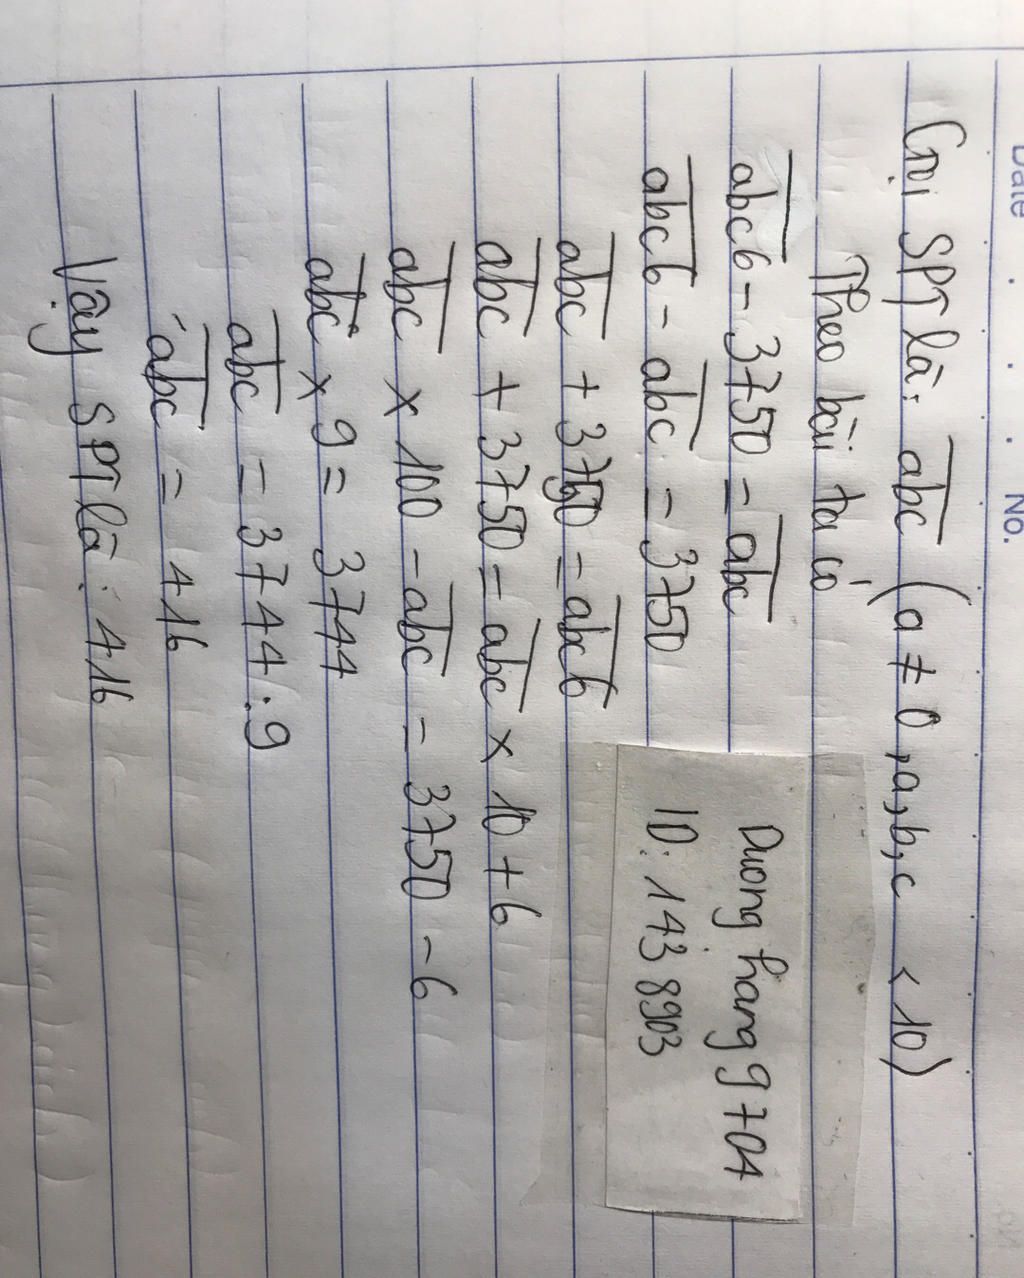 Date . . . No.
Gọi SPT là: abc (a ≠ 0, a, b, c < 10)
Theo bài ta có
abc6 - 3750 = abc
abc6 - abc = 3750
abc + 3750 = abc6
abc + 3750 = abc x 10 + 6
abc x 100 - abc = 3750 - 6
abc x 9 = 3744
abc = 3744 : 9
abc = 416
Vậy SPT là: 416
Duong hang 9704
ID: 143 8903